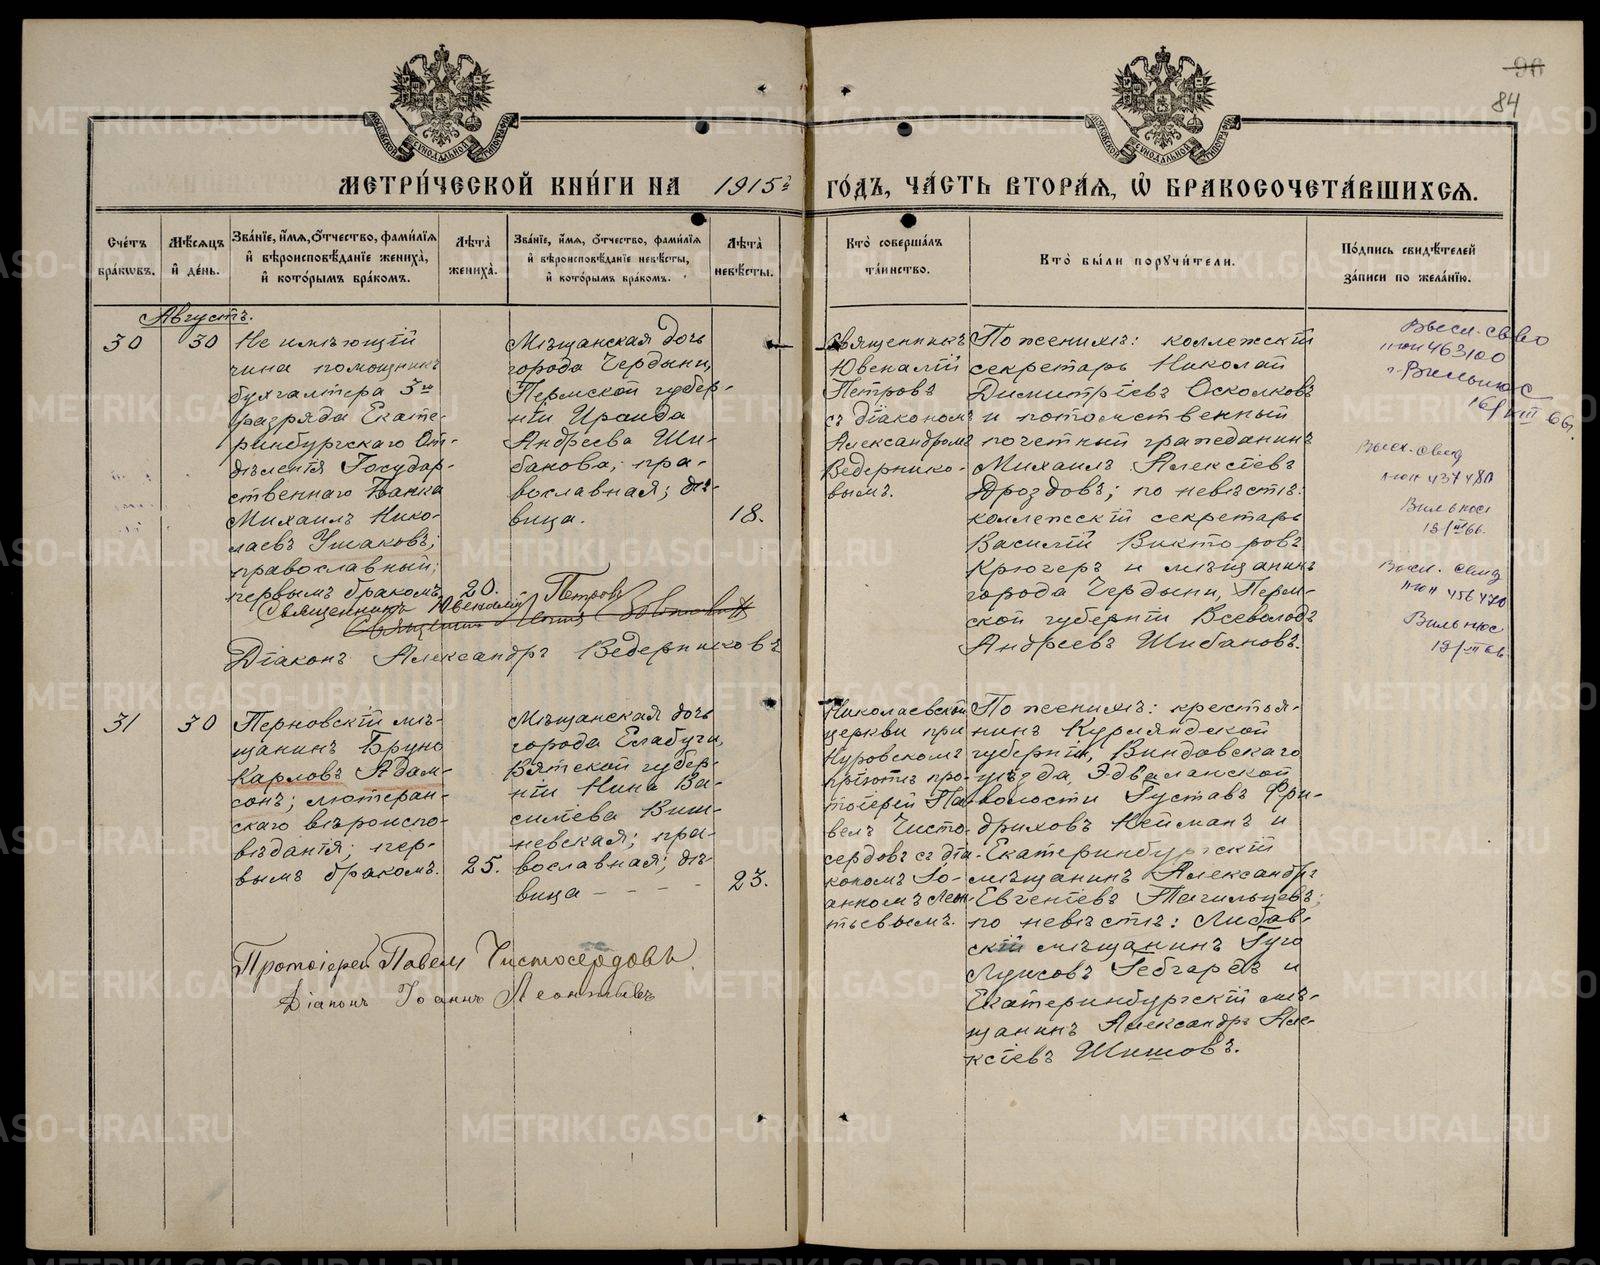 90
84
МОСКОВСКОЙ СѴНОДАЛЬНОЙ ТИПОГРАФІИ
МОСКОВСКОЙ СѴНОДАЛЬНОЙ ТИПОГРАФІИ
МЕТРИ́ЧЕСКОЙ КНИ́ГИ НА 1915 г. ГО́ДЪ, ЧА́СТЬ ВТОРА́Ѧ, Ѡ҆ БРАКОСОЧЕТА́ВШИХСѦ.
Сче́тъ
бра́кѡвъ.
Мѣ́сѧцъ
и҆ де́нь.
Зва́нїе, и҆́мѧ, ѻ҆́тчество, фами́лїѧ
и҆ вѣроисповѣ́данїе жениха̀,
и҆ кото́рымъ бра́комъ.
Лѣта̀
жениха̀.
Зва́нїе, и҆́мѧ, ѻ҆́тчество, фами́лїѧ
и҆ вѣроисповѣ́данїе невѣ́сты,
и҆ кото́рымъ бра́комъ.
Лѣта̀
невѣ́сты.
Кто̀ соверша́лъ
та́инство.
Кто̀ бы́ли порꙋчи́тели.
По́дпись свидѣ́телей
за́писи по жела́нїю.
Августъ.
30
30
Не имѣющій
чина помощникъ
бухгалтера 3го
разряда Екате-
ринбургскаго От-
дѣленія Государ-
ственнаго Банка
Михаилъ Нико-
лаевъ Ушаковъ;
православный;
первымъ бракомъ.
20.
Мѣщанская дочь
города Чердыни,
Пермской губер-
ніи Ираида
Андреева Ши-
банова, пра-
вославная; дѣ-
вица.
18.
Священникъ
Ювеналій
Петровъ
съ діакономъ
Александромъ
Ведернико-
вымъ.
По женихѣ: коллежскій
секретарь Николай
Димитріевъ Осколковъ
и потомственный
почетный гражданинъ
Михаилъ Алексіевъ
Дроздовъ; по невѣстѣ:
коллежскій секретарь
Василій Викторовъ
Крюгеръ и мѣщанинъ
города Чердыни, Перм-
ской губерніи Всеволодъ
Андреевъ Шибановъ.
Высл. св-во
463100
г. Вильнюс
16/XII 66г.
Высл. свид
437480
Вильнюс
Высл. свид
456470
Вильнюс
Священникъ Ювеналій Петровъ
Діаконъ Александръ Ведерниковъ
31
30
Перновскій мѣ-
щанинъ Бруно
Карловъ Адам-
сонъ; лютеран-
скаго вѣроиспо-
вѣданія; пер-
вымъ бракомъ.
25.
Мѣщанская дочь
города Елабуги,
Вятской губер-
ніи Нина Ва-
силіева Виш-
невская; пра-
вославная; дѣ-
вица - - - -
23.
Николаевской
церкви при
Нуровскомъ
пріютѣ про-
тоіерей Па-
велъ Чисто-
сердовъ съ діа-
кономъ Іо-
анномъ Леон-
тьевымъ.
По женихѣ: крестья-
нинъ Курляндской
губерніи, Виндавскаго
уѣзда, Эдваланской
волости Густавъ Фри-
дриховъ Нейманъ и
Екатеринбургскій
мѣщанинъ Александръ
Евгеніевъ Тагильцевъ;
по невѣстѣ: Либав-
скій мѣщанинъ Гуго
Луисовъ Гебгардъ и
Екатеринбургскій мѣ-
щанинъ Александръ Але-
ксіевъ Шишовъ.
Протоіерей Павелъ Чистосердовъ
Діаконъ Іоаннъ Леонтьевъ
METRIKI.GASO-URAL.RU